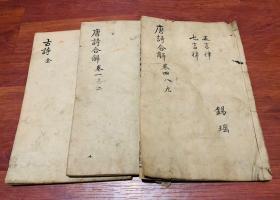 五言律
七言律
唐詩合解 卷四八九
錫瑞
唐詩合解 卷一之二
古詩 全